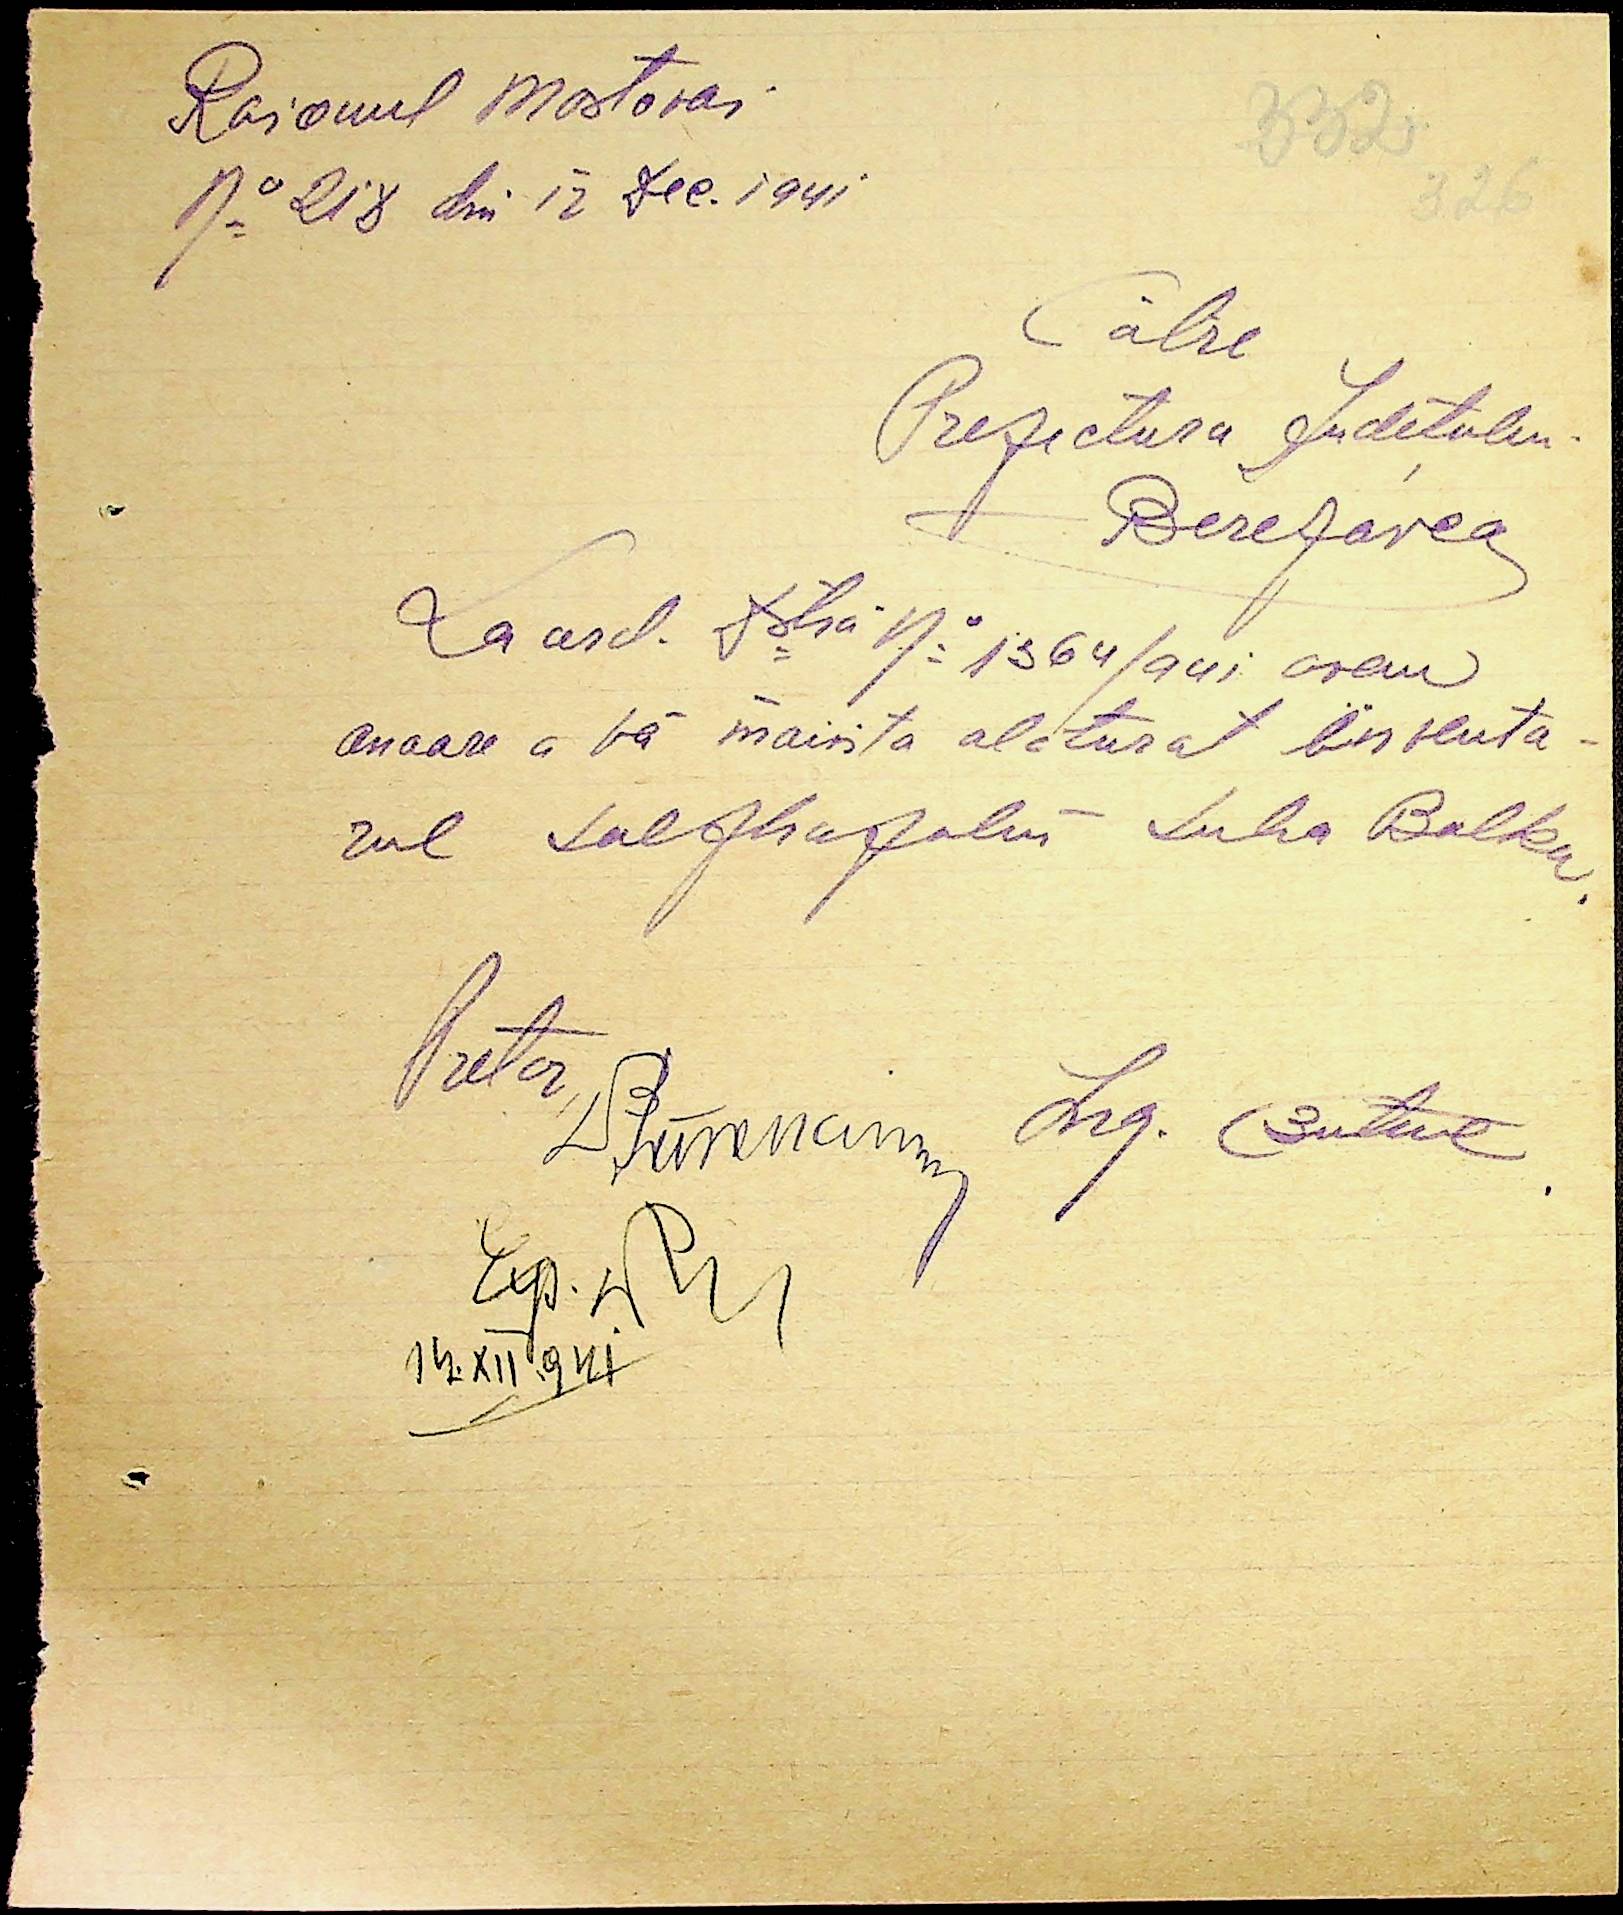 Raionul Mostovai
332
326
No 218 din 12 Dec. 1941
Către
Prefectura Județului
Berezovca
La ord. Dstră No 1364/941 avem
onoare a vă înainta alăturat inventa-
rul Salzhazului Suha Balka.
Pretor,
Ing.
Exp.
14.XII.941